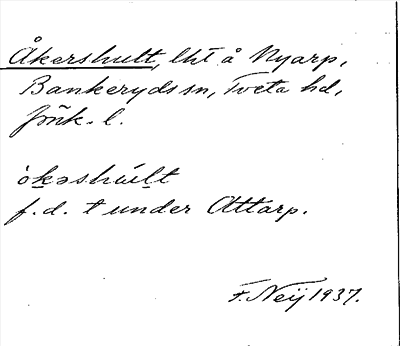 Åkershult, lht å Nyarp,
Bankeryds sn, Tveta hd,
Jönk. l.
òkəshúlt
f. d. t under Attarp.
F. Neij 1937.